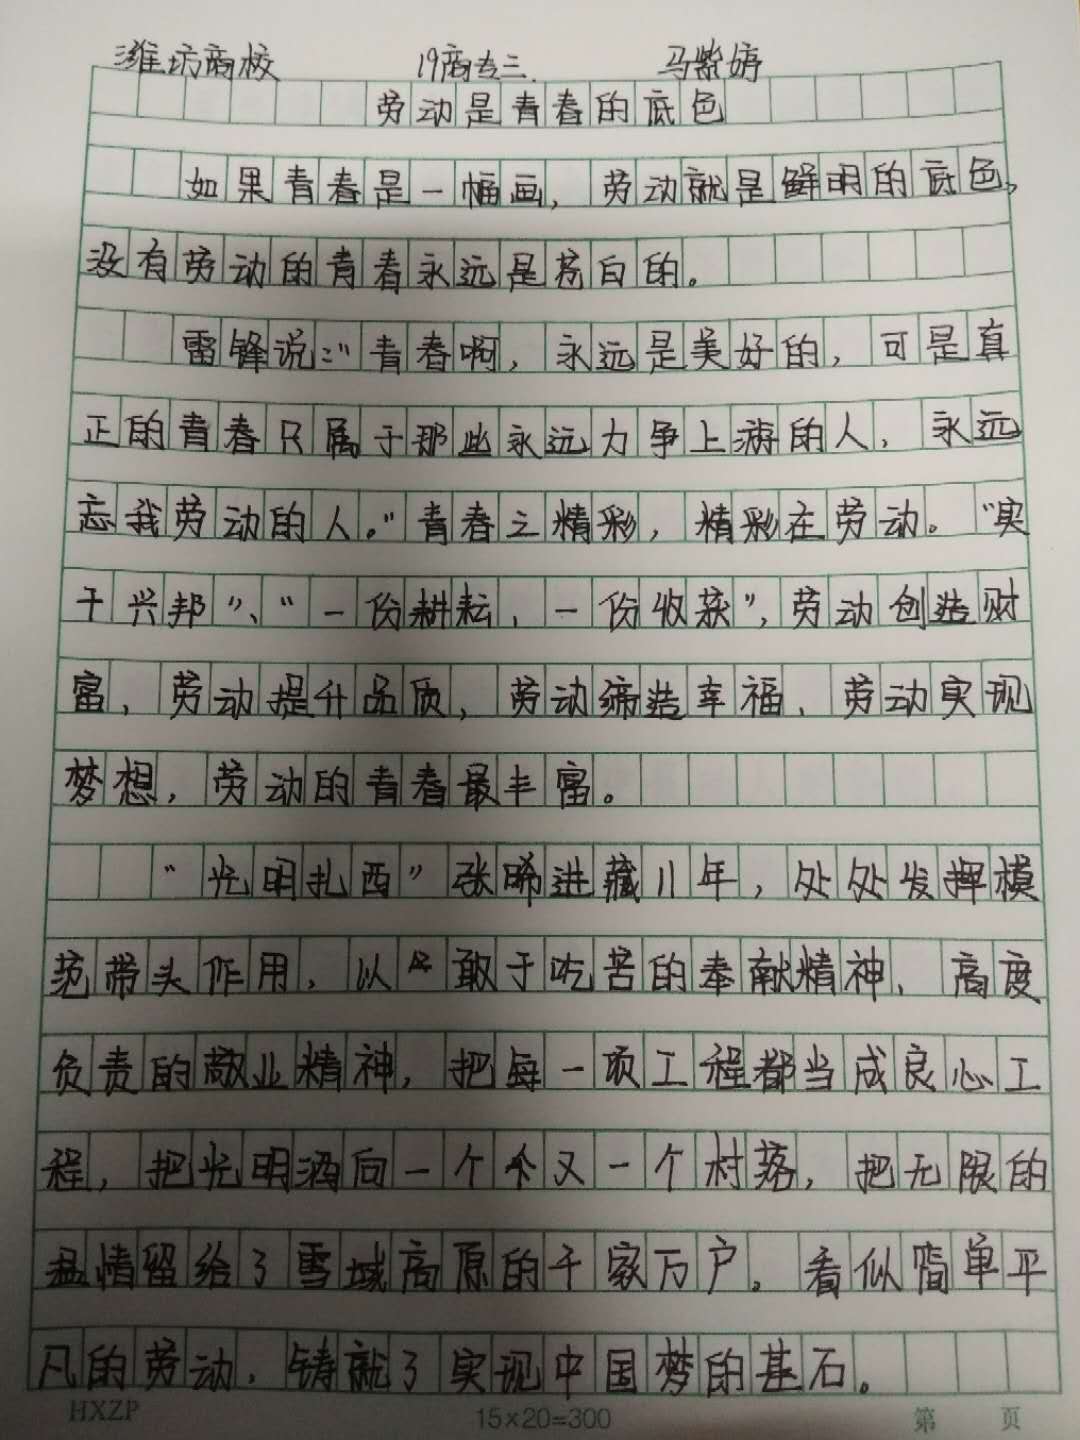 潍坊商校 19商专三 马紫婷
劳动是青春的底色
如果青春是一幅画，劳动就是鲜明的底色，
没有劳动的青春永远是苍白的。
雷锋说：“青春啊，永远是美好的，可是真
正的青春只属于那些永远力争上游的人，永远
忘我劳动的人。”青春之精彩，精彩在劳动。“实
干兴邦”、“一份耕耘，一份收获”，劳动创造财
富，劳动提升品质，劳动缔造幸福，劳动实现
梦想，劳动的青春最丰富。
“光明扎西”张晞进藏11年，处处发挥模
范带头作用，以敢于吃苦的奉献精神、高度
负责的敬业精神，把每一项工程都当成良心工
程，把光明洒向一个又一个村落，把无限的
温情留给了雪域高原的千家万户。看似简单平
凡的劳动，铸就了实现中国梦的基石。
HXZP 15×20=300 第 页